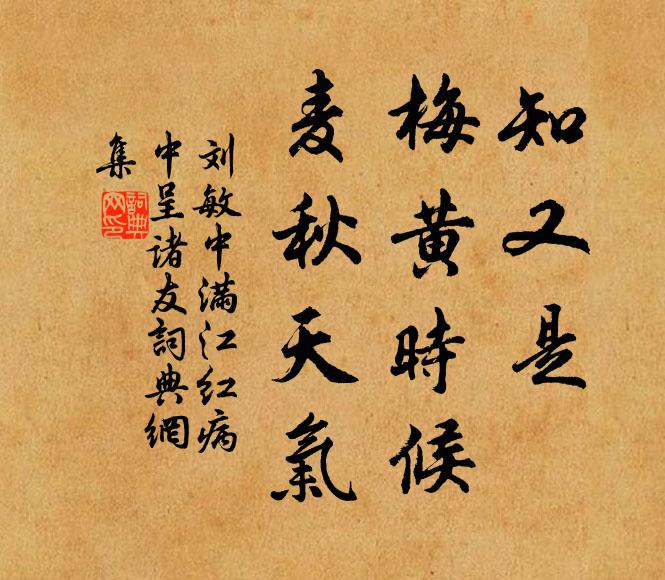 知又是
梅黄時候
麦秋天氣
刘敏中满江红病
中呈诸友詞典網
集
詞典
网印